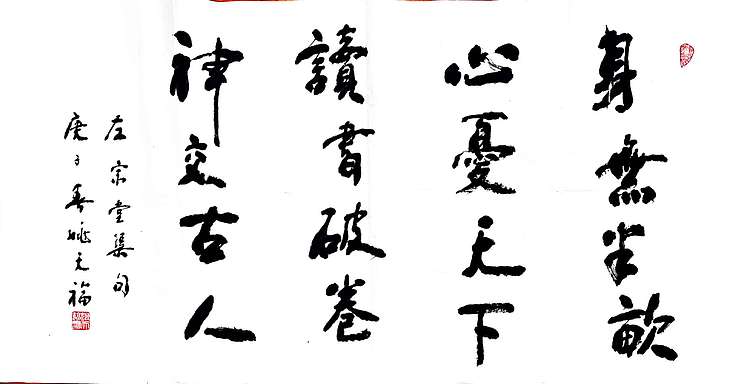 身無半畝
心憂天下
讀書破卷
神交古人
左宗堂集句
庚子春姚天福